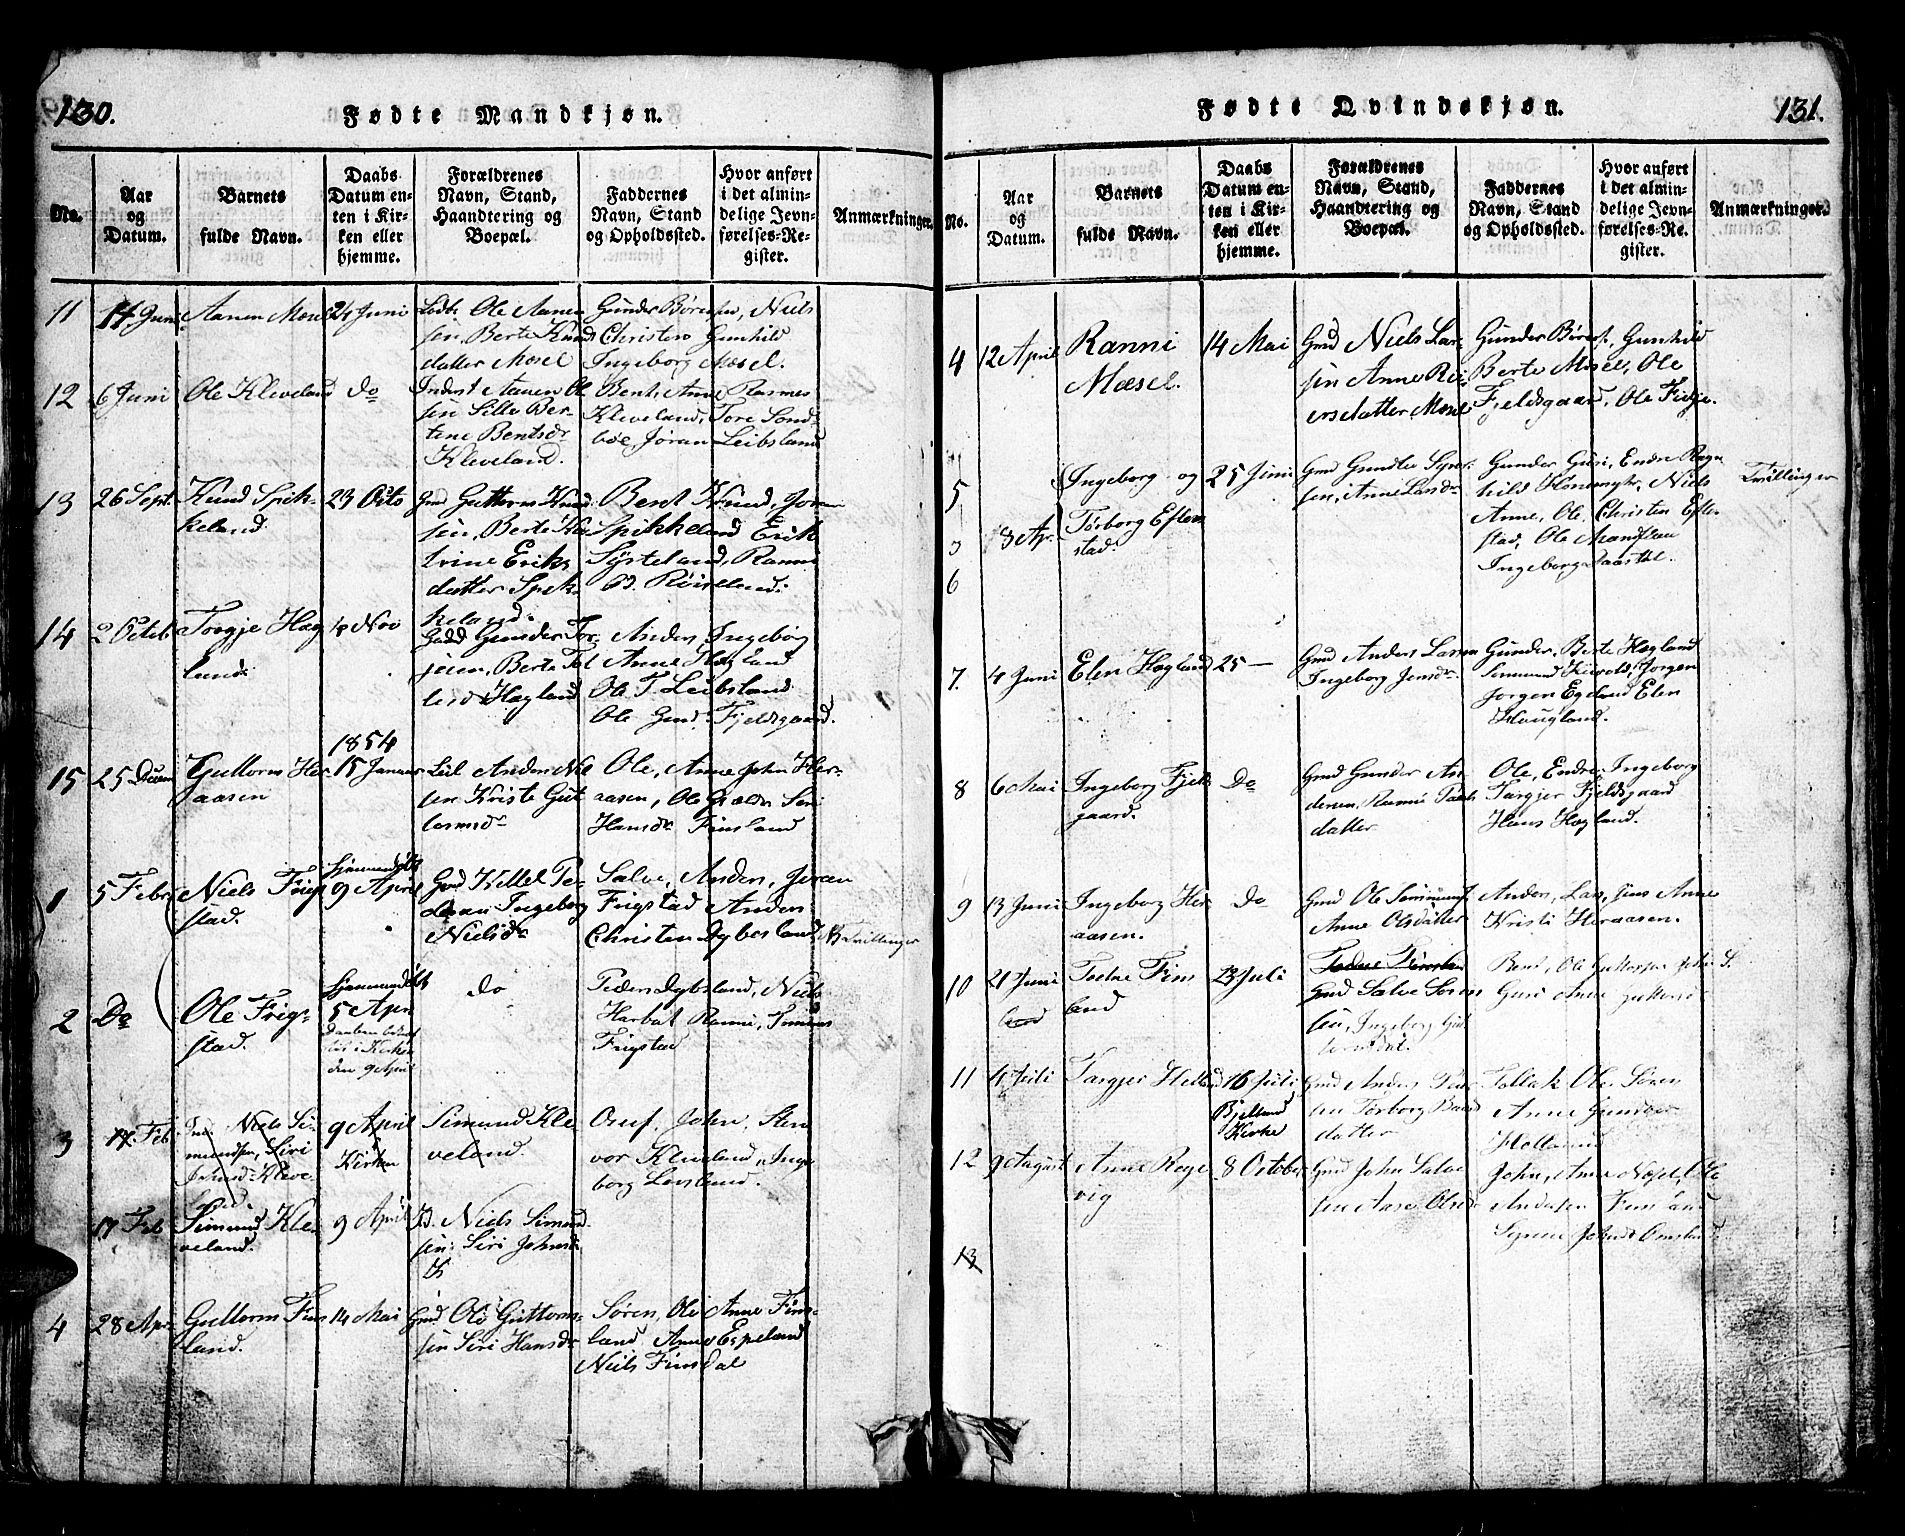 130.
Fødte Mandkjøn.
No.
Aar
og
Datum.
Barnets
fulde Navn.
Daabs
Datum en-
ten i Kir-
ken eller
hjemme.
Forældrenes
Navn, Stand,
Haandtering og
Boepæl.
Faddernes
Navn, Stand
og Opholdssted.
Hvor anført
i det almin-
delige Jevn-
førelses-Re-
gister.
Anmærkninger.
11
14 Juni
Aanen Mosel
24 Juni
Ole Aanen
sen Berte Knud
datter Mosel
Gunder Børufsen, Niels
Christen Gunhild
Ingeborg Mosel.
12
6 Juni
Ole Kleveland
do
Inderst Aanen Ol
sen Sille Ber-
tine Bentsdr
Kleveland.
Bent, Anne Rasmes
Kleveland, Tore Sond-
böe, Jöran Leibsland
13
26 Sept.
Knud Spik-
keland
23 Octo
Gmd Guttorm Knud-
sen, Berte Ka
trine Eriks
datter Spik-
keland.
Bent Knud, Joren
Spikkeland Erik
Systeland, Ranni
Röiseland.
14
2 Octob
Torgje Hag
land
18 Nov
Gmd Gunder Tor-
jesen, Berte Tol
lefsd Hagland
Anders Ingebör
Anne Hagland
Ole T. Leibsland
Ole Gund. Fjeldsgaard.
15
25 Decem
Guttorm Her-
aasen
1854
15 Januar
Leil Anders Nie
sen Kriste Gut
tormsdr
Ole, Anne John Her-
aasen, Ole Siri
Hansdr Finsland
1
5 Febr
Niels Frig-
stad.
hjemmedöbt
9 April
Gmd Kettel Pe-
dersen Ingeborg
Nielsdr
Salve, Anders, Joren
Frigstad Anders
Christen Dybesland
NB Tvillinger
2
Do
Ole Frig-
stad.
hjemmedöbt
5 Apr
Daaben
i Kirken
den 9 April
do
Peder Dybsland, Niels
Harbak Ranni, Tomines
Frigstad
3
17. Feb
Niels Si-
mundsen, Siri
Johnsd. Kleve-
land.
9 April
Kirken
Simund Kle
veland.
Osuf, John, Sten
vor Kleveland, Inge
borg Leisland.
17 Feb
Simund Kle-
veland.
9 April
Niels Simund-
sen, Siri Johnsd
K
4
28 Apr.
Guttorm Fins
land.
14 Mai
Gmd Ole Guttorm-
sen Siri Hansdr
Sören, Ole Anne Fins-
land, Anne Espeland
Niels Finsdal
131.
Fødte Qvindekjøn.
No.
Aar
og
Datum.
Barnets
fulde Navn.
Daabs
Datum en-
ten i Kir-
ken eller
hjemme.
Forældrenes
Navn, Stand,
Haandtering og
Boepæl.
Faddernes
Navn, Stand
og Opholdssted.
Hvor anført
i det almin-
delige Jevn-
førelses-Re-
gister.
Anmærkninger.
4
12 April
Ranni
Mæsel.
14 Mai
Gmd Niels Lar-
sen Anne Rei-
ersdatter Mosel
Gunder Børuf, Gunhild
Berte Mosel, Ole
Fjeldsgaard, Ole Fidje.
5
6
18 Apr.
Ingeborg og
Törborg Eften
stad.
25 Juni
Gmd Gundte Syver-
sen, Anne Larsdr
Gunder Guri, Endre Ragn
hild Honnemyhr, Niels
Anne, Ole, Christen Eften
stad, Ole
Ingeborg Aasthe.
Tvillinger
7.
4 Juni
Elen Hagland
25 —
Gmd Anders Larsen
Ingeborg Jensdr.
Gunder, Berte Hagland
Jörgen
Jörgen Egeland Elen
Haugland.
8
6 Mai
Ingeborg Fjeld-
gaard.
Do
Gmd Gunder An
dersen, Ranni
datter
Ole, Endre, Ingeborg
Targjer Fjeldsgaard
Hans Hagland.
9
13 Juni
Ingeborg Her-
aasen.
Do
Gmd Ole Simundsen
Anne Olsdatter
Anders, Lars, Jens Anne
Kristi Heraasen.
10
21 Juni
land
Todne Fins
land
23 Juli
Todne Finsland
Gmd Salve Sören
sen, Ingeborg Gut
tormsdat.
Bent, Ole Guttormsen S.
Guri Anne Guttormsd
11
4 Juli
Targjer Helland
16 Juli
Bjelland
Kirke
Gmd Anders
sen Törborg
datter
Tollak Ole Sören
Anne Gunder
Helland
12
9 August
Anne Rege
vig
8 October
Gmd John Salve
sen Aase Olsd
John, Anne Ole
Andersen Finsland
Syrene Johnsd Omsland
13